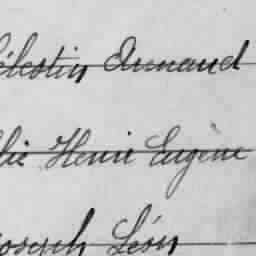 élestin Armand
lie Henri Eugène
oseph Léon